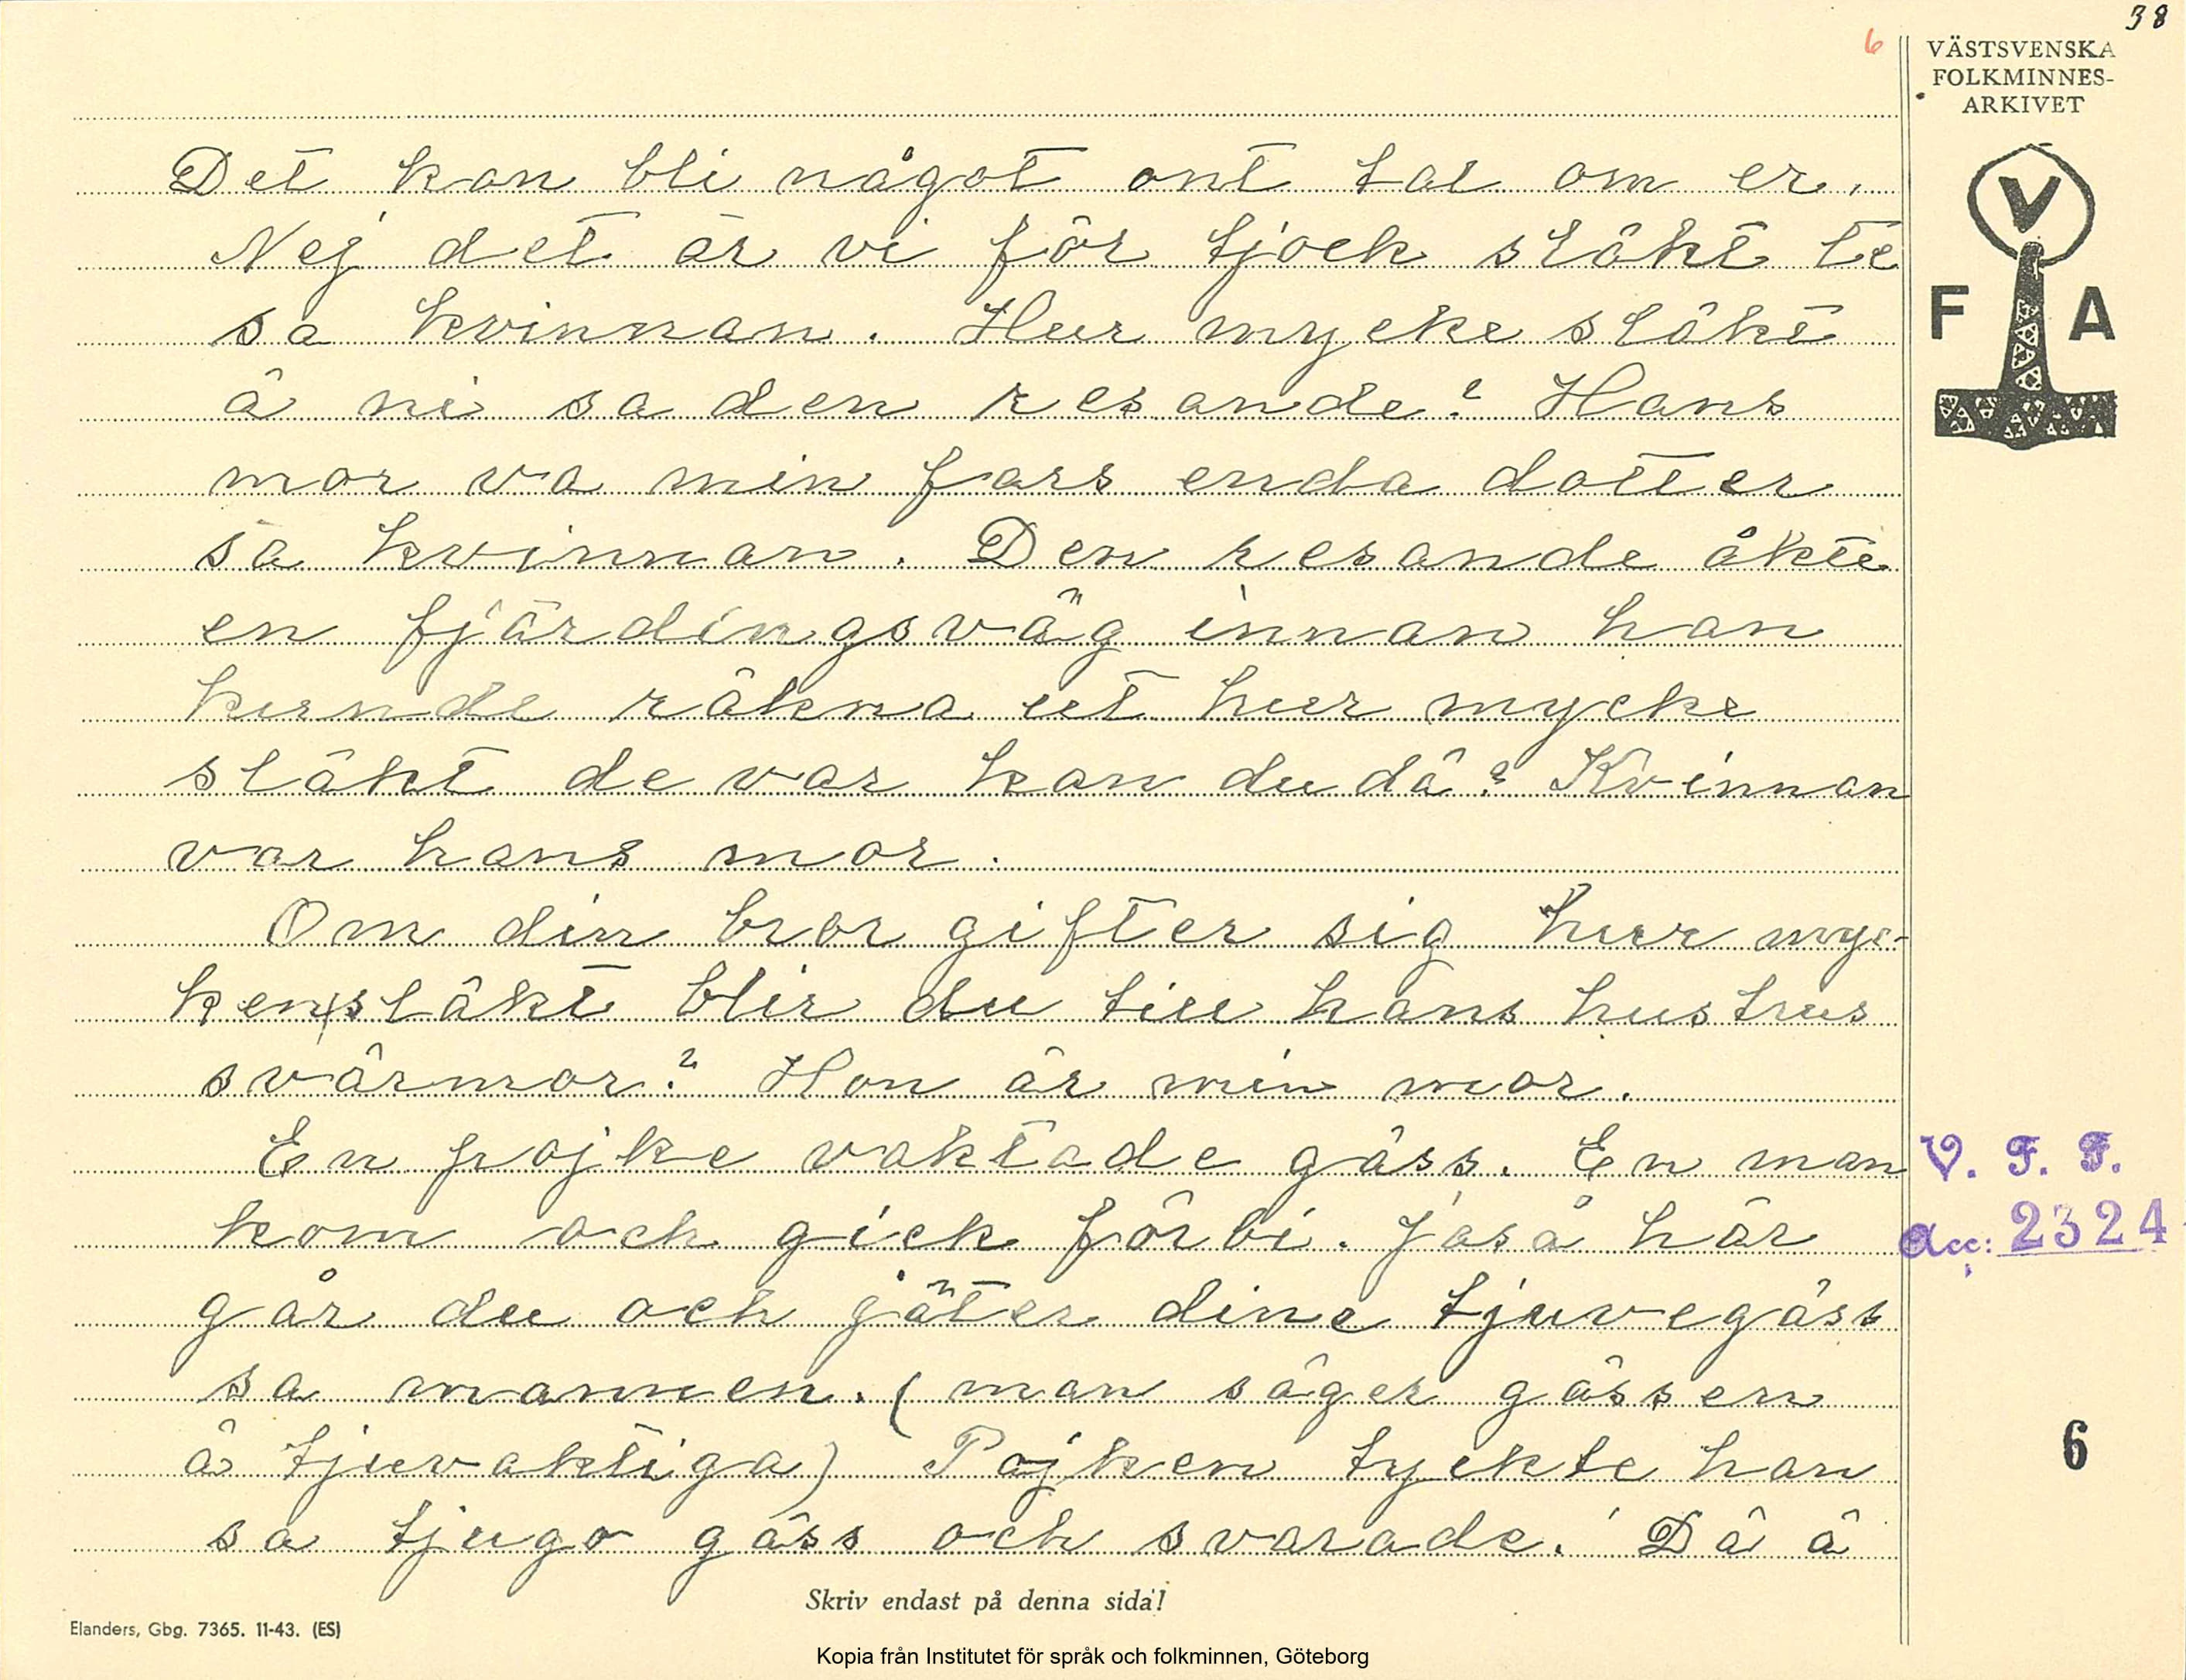 38
6
VÄSTSVENSKA
FOLKMINNES-
ARKIVET
V
F A
Det kan bli något ont tal om er.
Nej det är vi för tjock släkt te
sa kvinnan. Hur mycke släkt
ä ni sa den resande? Hans
mor va min fars enda dotter
sa kvinnan. Den resande åkte
en fjärdingsväg innan han
kunde räkna ut hur mycke
släkt de var kan du dä? Kvinnan
var hans mor.
Om din bror gifter sig hur myc-
ken släkt blir du till hans hustrus
svärmor? Hon är min mor.
En pojke vaktade gäss. En man
kom och gick förbi. Jaså här
går du och jäter dine tjuvegäss
sa mannen. (man säger gässen
ä tjuvaktiga) Pojken tyckte han
sa tjugo gäss och svarade. Dä ä
V. F. F.
acc: 2324
6
Skriv endast på denna sida!
Elanders, Gbg. 7365. 11-43. (ES)
Kopia från Institutet för språk och folkminnen, Göteborg